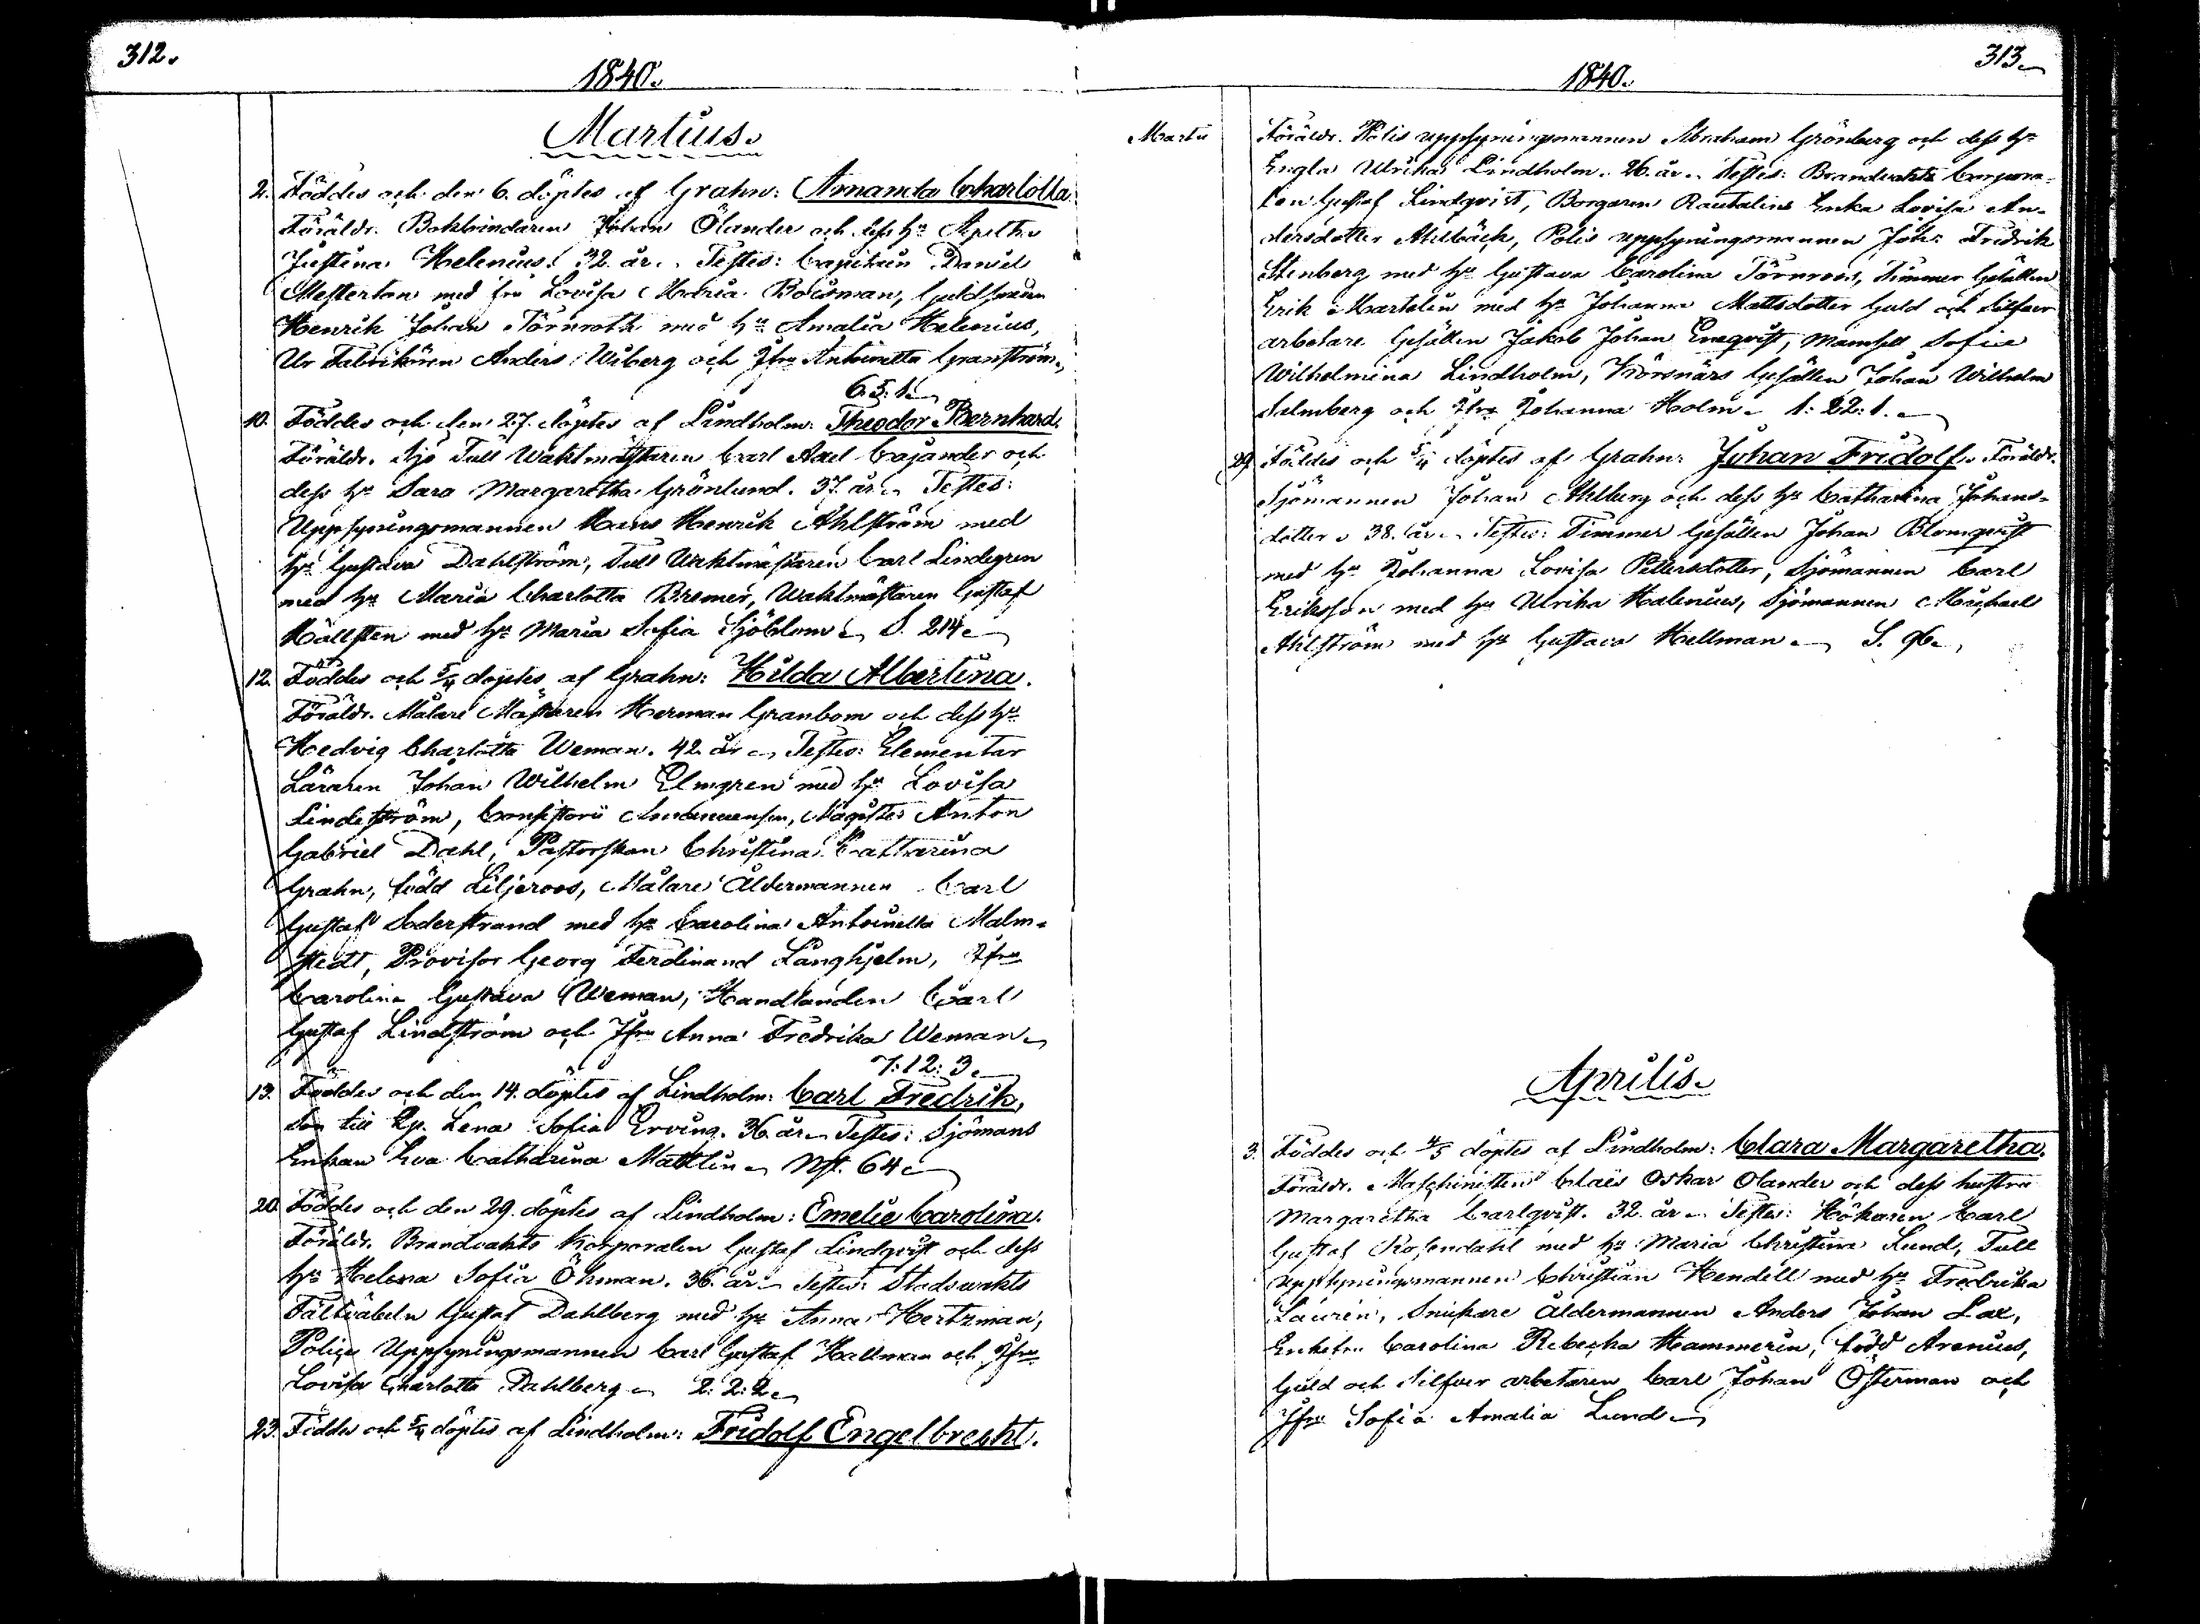 312.
1840.
Martius.
2. Föddes och den 6. döptes af Grahn: Amanda Charlotta.
Föräldr. Bokbindaren Johan Ölander och dess hu Agatha
Justina Helenius. 32 år. Testes: Capitain Daniel
Mesterton med fru Lovisa Maria Boisman, Guldsmeden
Henrik Johan Törnroth med hu Amalia Helenius,
Ur Fabrikören Anders Wiberg och Jfru Antoinetta Granström.
6:5:1.
10. Föddes och den 27. döptes af Lindholm: Theodor Bernhard.
Föräldr. Sjö Tull Waktmästaren Carl Axel Cajander och
dess hu Sara Margaretha Grönlund. 37 år. Testes:
Uppsyningsmannen Hans Henrik Ahlström med
hu Gustava Dahlström, Tull Waktmästaren Carl Lindegren
med hu Maria Charlotta Bremer, Waktmästaren Gustaf
Hällsten med hu Maria Sofia Sjöblom. S. 214.
12. Föddes och 5/4 döptes af Grahn: Hilda Albertina.
Föräldr. Målare Mästaren Herman Granbom och dess hu
Hedvig Charlotta Weman. 42 år. Testes: Elementar
Läraren Johan Wilhelm Elmgren med hu Lovisa
Lindeström, Consistorii Amanuensen, Magister Anton
Gabriel Dahl, Pastorskan Christina Catharina
Grahn, född Liljeroos, Målare Åldermannen Carl
Gustaf Söderstrand med hu Carolina Antoinetta Malm-
stedt, Provisor Georg Ferdinand Långhjelm, Jfru
Carolina Gustava Weman, Handlanden Carl
Gustaf Lindström och Jfru Anna Fredrika Weman.
7:12:3.
13. Föddes och den 14. döptes af Lindholm: Carl Fredrik,
Son till Lena Sofia Erving. 36 år. Testes: Sjömans
Enkan Eva Catharina Mattlin. 64.
20. Föddes och den 29. döptes af Lindholm: Emelie Carolina.
Föräldr. Brandvakts Korporalen Gustaf Lindqvist och dess
hu Helena Sofia Öhman. 36 år. Testes: Stadswakts
Fältväbeln Gustaf Dahlberg med hu Anna Hertzman,
Polices Uppsyningsmannen Carl Gustaf Hallman och Jfru
Lovisa Charlotta Dahlberg. 2:2:2.
23. Föddes och 5/4 döptes af Lindholm: Fridolf Engelbrecht.
313.
1840.
Martii
Föräldr. Polis uppsyningsmannen Abraham Grönberg och dess hu
Engla Ulrika Lindholm. 26 år. Testes: Brandvakts Corpora-
len Gustaf Lindqvist, Borgaren Rautalins Enka Lovisa An-
dersdotter Ahlbäck, Polis uppsyningsmannen Joh: Fredrik
Stenberg med hu Gustava Carolina Törnroos, Timmer Gesällen
Erik Martelin med hu Johanna Mattsdotter Guld och Silfver
arbetare Gesällen Jakob Johan Eneqvist, Mamsell Sofia
Wilhelmina Lindholm, Körsnärs Gesällen Johan Wilhelm
Salmberg och Jfru Johanna Holm. 1:22:1.
29. Föddes och 5/4 döptes af Grahn: Johan Fridolf. Föräldr.
Sjömannen Johan Ahlberg och dess hu Catharina Johans-
dotter. 38. år. Testes: Timmer Gesällen Johan Blomqvist
med hu Johanna Lovisa Pettersdotter, Sjömannen Carl
Eriksson med hu Ulrika Halenius, Sjömannen Michael
Ahlström med hu Gustava Hellman. S. 96.
Aprilis.
3. Föddes och 4/5 döptes af Lindholm: Clara Margaretha.
Föräldr. Maschinisten Claës Oskar Olander och dess hustru
Margaretha Carlqvist. 32. år. Testes: Hökaren Carl
Gustaf Rosendahl med hu Maria Christina Lund, Tull
uppsyningsmannen Christian Hendell med hu Fredrika
Laurén, Snickare Åldermannen Anders Johan Lax,
Enkefru Carolina Rebecka Hammerin, född Arenius,
Guld och Silfver arbetaren Carl Johan Österman och
Jfru Sofia Amalia Lund.